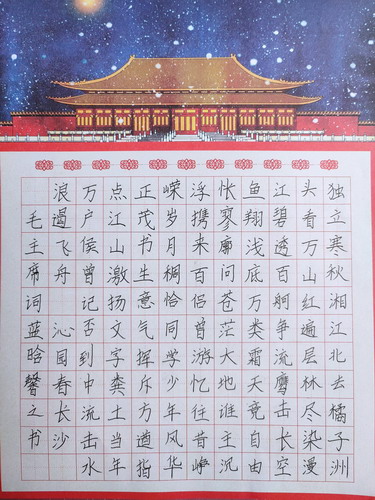 独立寒秋湘江北去橘子洲
头看万山红遍层林尽染漫
江碧透百舸争流鹰击长空
鱼翔浅底万类霜天竞自由
怅寥廓问苍茫大地谁主沉
浮携来百侣曾游忆往昔峥
嵘岁月稠恰同学少年风华
正茂书生意气挥斥方遒指
点江山激扬文字粪土当年
万户侯曾记否到中流击水
浪遏飞舟 沁园春长沙
毛主席词 蓝晗馨之书